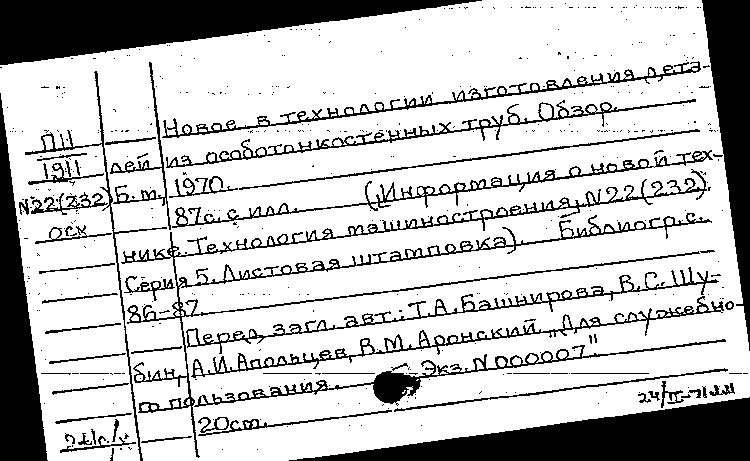 Новое в технологии изготовления дета-
ПН
1911
лей из особотонкостенных труб. Обзор.
N22(232)
Б.м., 1970.
осх
87с. с илл. („Информация о новой тех-
нике. Технология машиностроения, N22(232).
Серия 5. Листовая штамповка). Библиогр. с.
86-87.
Перед загл. авт.: Т.А. Башнирова, В.С. Шу-
бин, А.И. Апольцев, В.М. Аронский „Для служебно-
го пользования. Экз. N000007".
20см.